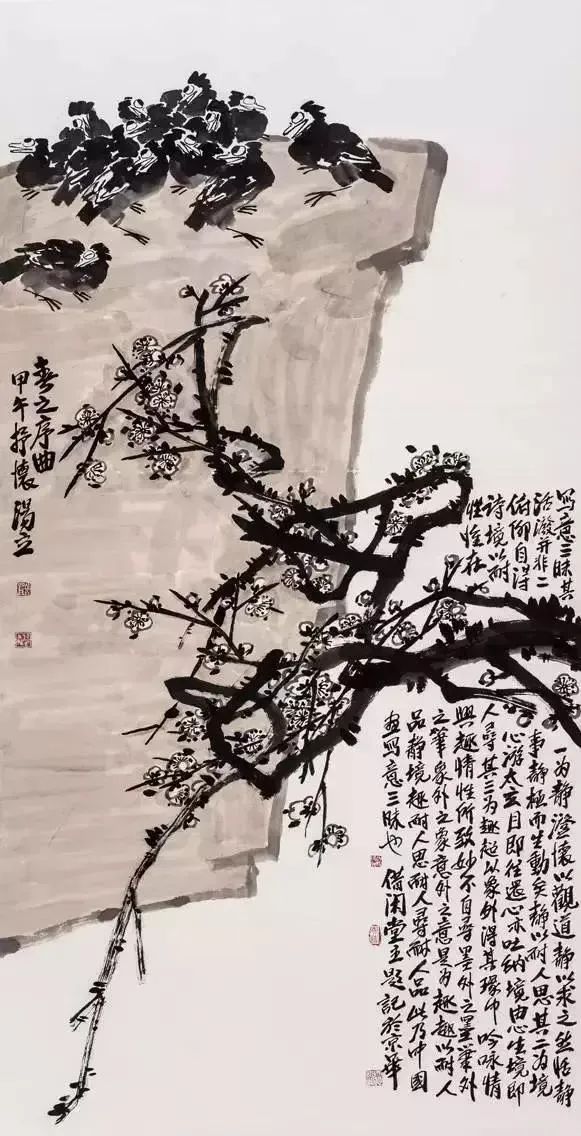 春之序曲
甲午抒懷 湯立
写意三昧其一为静澄懷以觀道静以求之然恬静
活潑并非二事静極而生動矣静以耐人思其二为境
俯仰自得心游太玄目即往還心亦吐纳境由心生境即
诗境以耐人尋其三为趣超以象外得其環中吟咏情
性惟在興趣情性所致妙不自尋墨外之墨筆外
之筆象外之象意外之意是为趣趣以耐人
品静境趣耐人思耐人尋耐人品此乃中國
画寫意三昧也 借闲堂主題記於京華